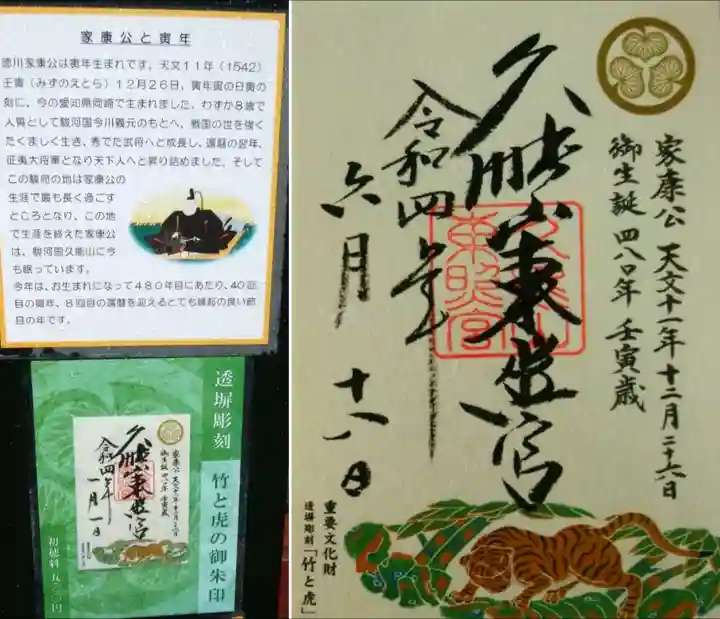 家康公と寅年
徳川家康公は寅年生まれです。天文11年(1542)
壬寅(みずのえとら)12月26日、寅年寅の日寅の
刻に、今の愛知県岡崎で生まれました。わずか8歳で
人質として駿河国今川義元のもとへ、戦国の世を強く
たくましく生き、秀でた武将へと成長し、還暦の翌年、
征夷大将軍となり天下人へと昇り詰めました。そして
この駿府の地は家康公の
生涯で最も長く過ごす
ところとなり、この地
で生涯を終えた家康公
は、駿河国久能山に今
も眠っています。
今年は、お生まれになって480年目にあたり、40回
目の寅年、8回目の還暦を迎えるとても縁起の良い節
目の年です。
透塀彫刻
竹と虎の御朱印
初穂料 五〇〇円
家康公 天文十一年 十二月二十六日
御生誕 四八〇年 壬寅歳
久能山東照宮
令和四年
一月一日
家康公 天文十一年 十二月二十六日
御生誕 四八〇年 壬寅歳
久能山東照宮
令和四年
六月十八日
重要文化財
透塀彫刻「竹と虎」